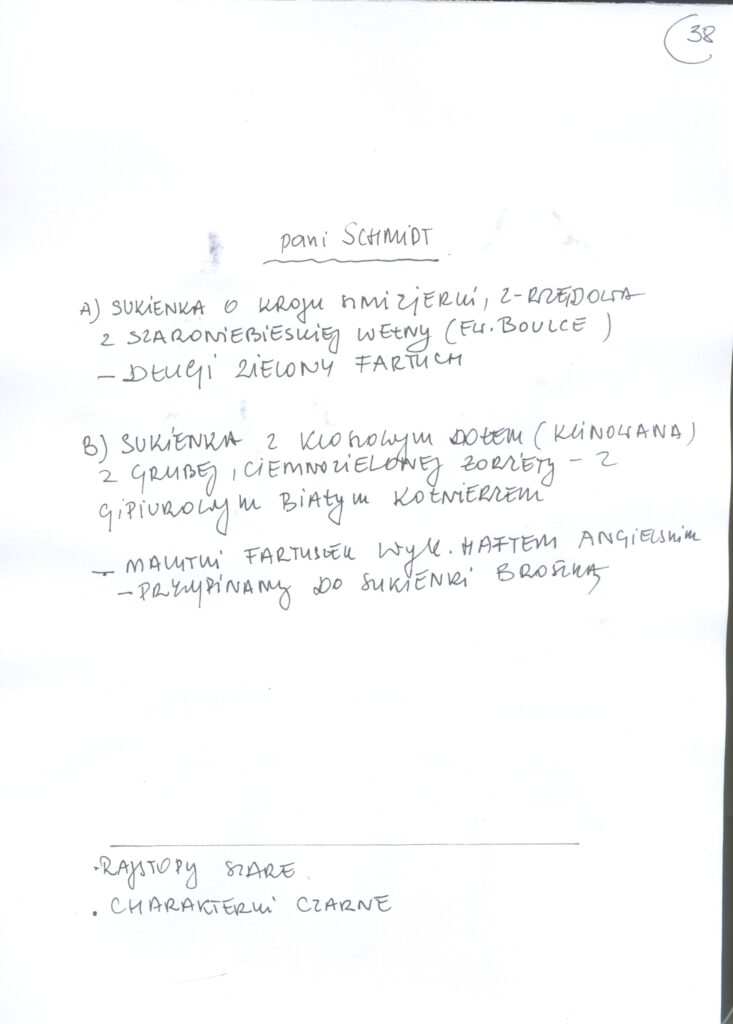 38
pani SCHMIDT
A) SUKIENKA O KROJU SZMIZJERKI, 2-RZĘDOWA
Z SZARONIEBIESKIEJ WEŁNY (EW. BOULCE)
— DŁUGI ZIELONY FARTUCH
B) SUKIENKA Z KLOSZOWYM DOŁEM (KLINOWANA)
Z GRUBEJ, CIEMNOZIELONEJ ŻORŻETY – Z
GIPIUROWYM BIAŁYM KOŁNIERZEM
— MALUTKI FARTUSZEK WYK. HAFTEM ANGIELSKIM
— PRZYPINANY DO SUKIENKI BROSZKĄ
• RAJSTOPY SZARE
• CHARAKTERKI CZARNE